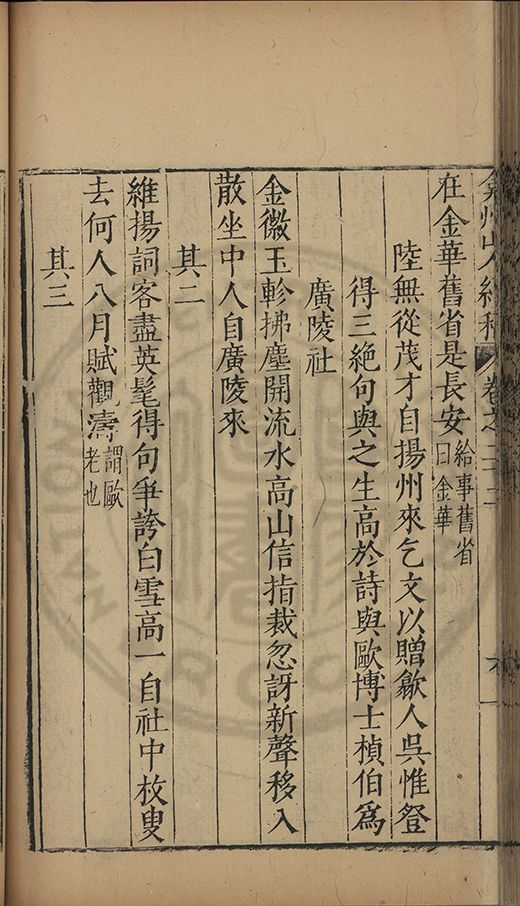 弇州山人續稿 卷之二十二
在金華舊省是長安給事舊省曰金華
陸無從茂才自揚州來乞文以贈歙人吳惟登
得三絕句與之生高於詩與歐博士楨伯為
廣陵社
金徽玉軫拂塵開流水高山信指裁忽訝新聲移入
散坐中人自廣陵來
其二
維揚詞客盡英髦得句爭誇白雪高一自社中枚叟
去何人八月賦觀濤謂歐老也
其三